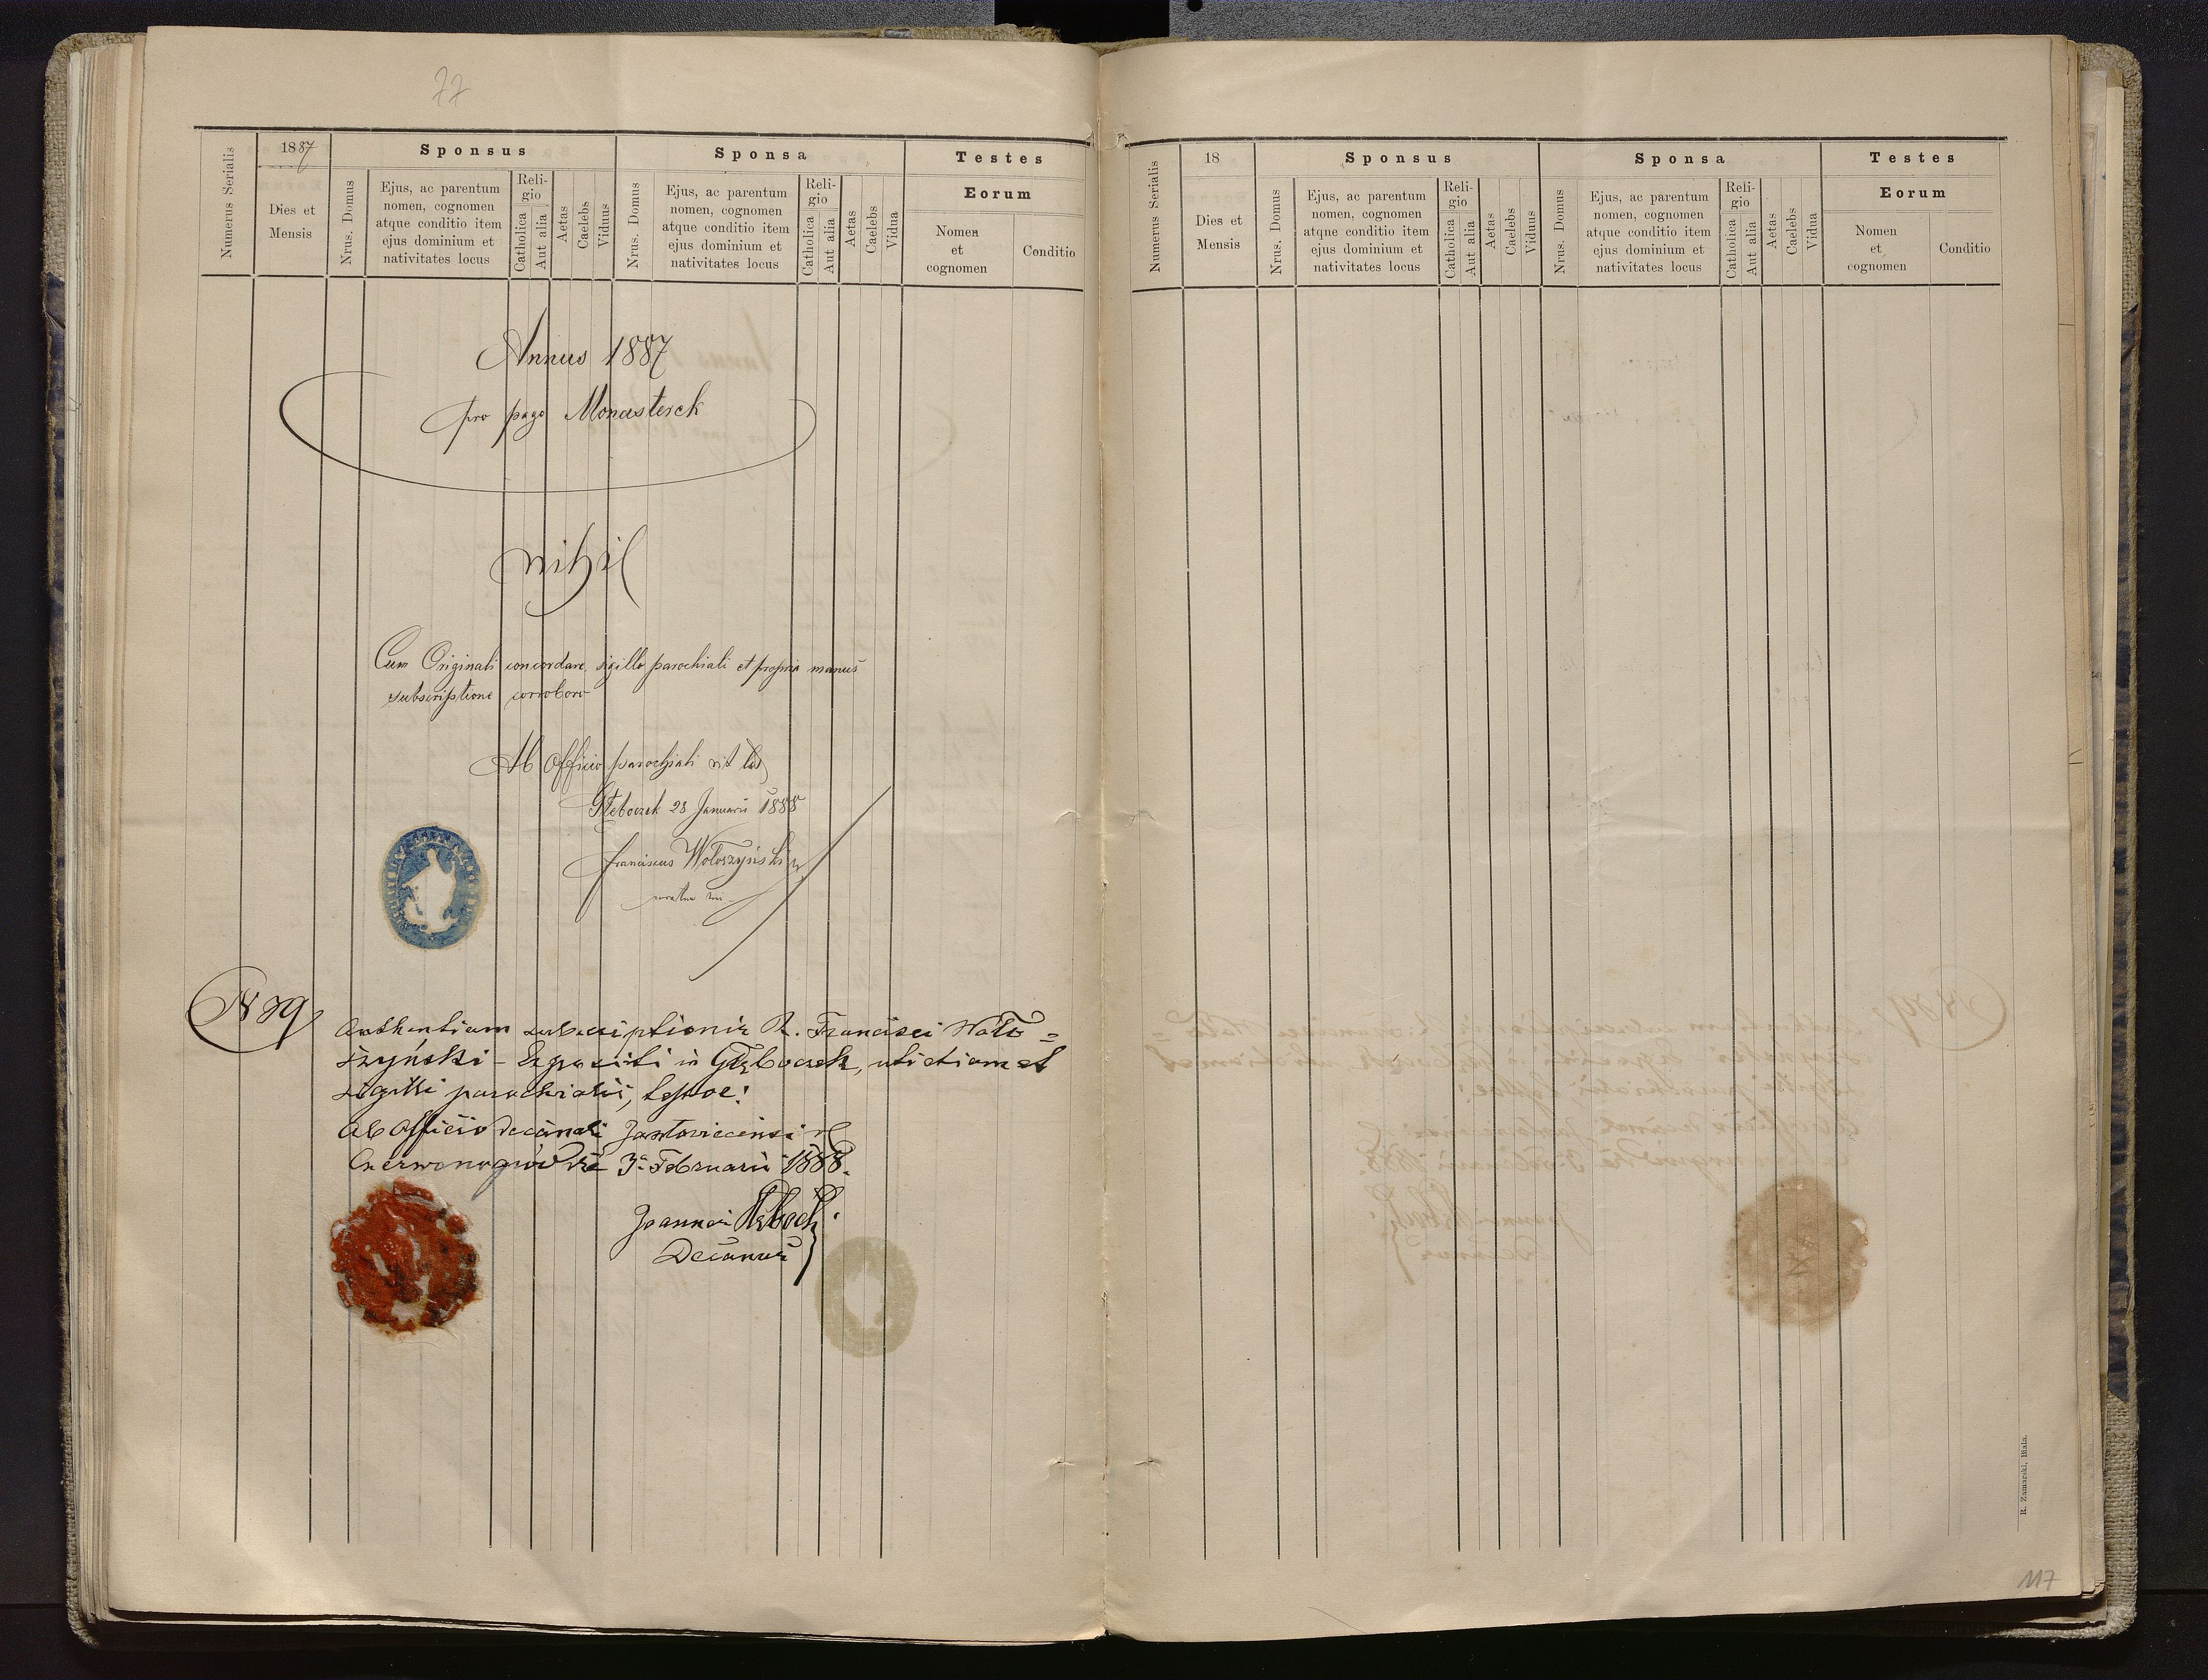 77
Numerus Serialis
1887
Dies et
Mensis
Sponsus
Nrus. Domus
Ejus, ac parentum
nomen, cognomen
atque conditio item
ejus dominium et
nativitates locus
Reli-
gio
Catholica
Aut alia
Aetas
Caelebs
Viduus
Sponsa
Nrus. Domus
Ejus, ac parentum
nomen, cognomen
atque conditio item
ejus dominium et
nativitates locus
Reli-
gio
Catholica
Aut alia
Aetas
Caelebs
Vidua
Testes
Eorum
Nomen
et
cognomen
Conditio
Annus 1887
pro pago Monasterek
nihil
Cum Originali concordare, sigillo parochiali et propria manus
subscriptione corroboro
Ab Officio parochiali rit lat
Głęboczek 28 Januarii 1888
Franciscus Wołoszyński
N 39
Authentiam subscriptionis R. Francisci Woło=
szyński - Expositi in Głęboczek, uti etiam et
sigilli parochialis, testor!
Ab Officio decanali Jazłoviecensi rl
Czerwonogród die 3a Februarii 1888.
Joannes
Decanus
Numerus Serialis
18
Dies et
Mensis
Sponsus
Nrus. Domus
Ejus, ac parentum
nomen, cognomen
atque conditio item
ejus dominium et
nativitates locus
Reli-
gio
Catholica
Aut alia
Aetas
Caelebs
Viduus
Sponsa
Nrus. Domus
Ejus, ac parentum
nomen, cognomen
atque conditio item
ejus dominium et
nativitates locus
Reli-
gio
Catholica
Aut alia
Aetas
Caelebs
Vidua
Testes
Eorum
Nomen
et
cognomen
Conditio
R. Zamarski, Biala.
117